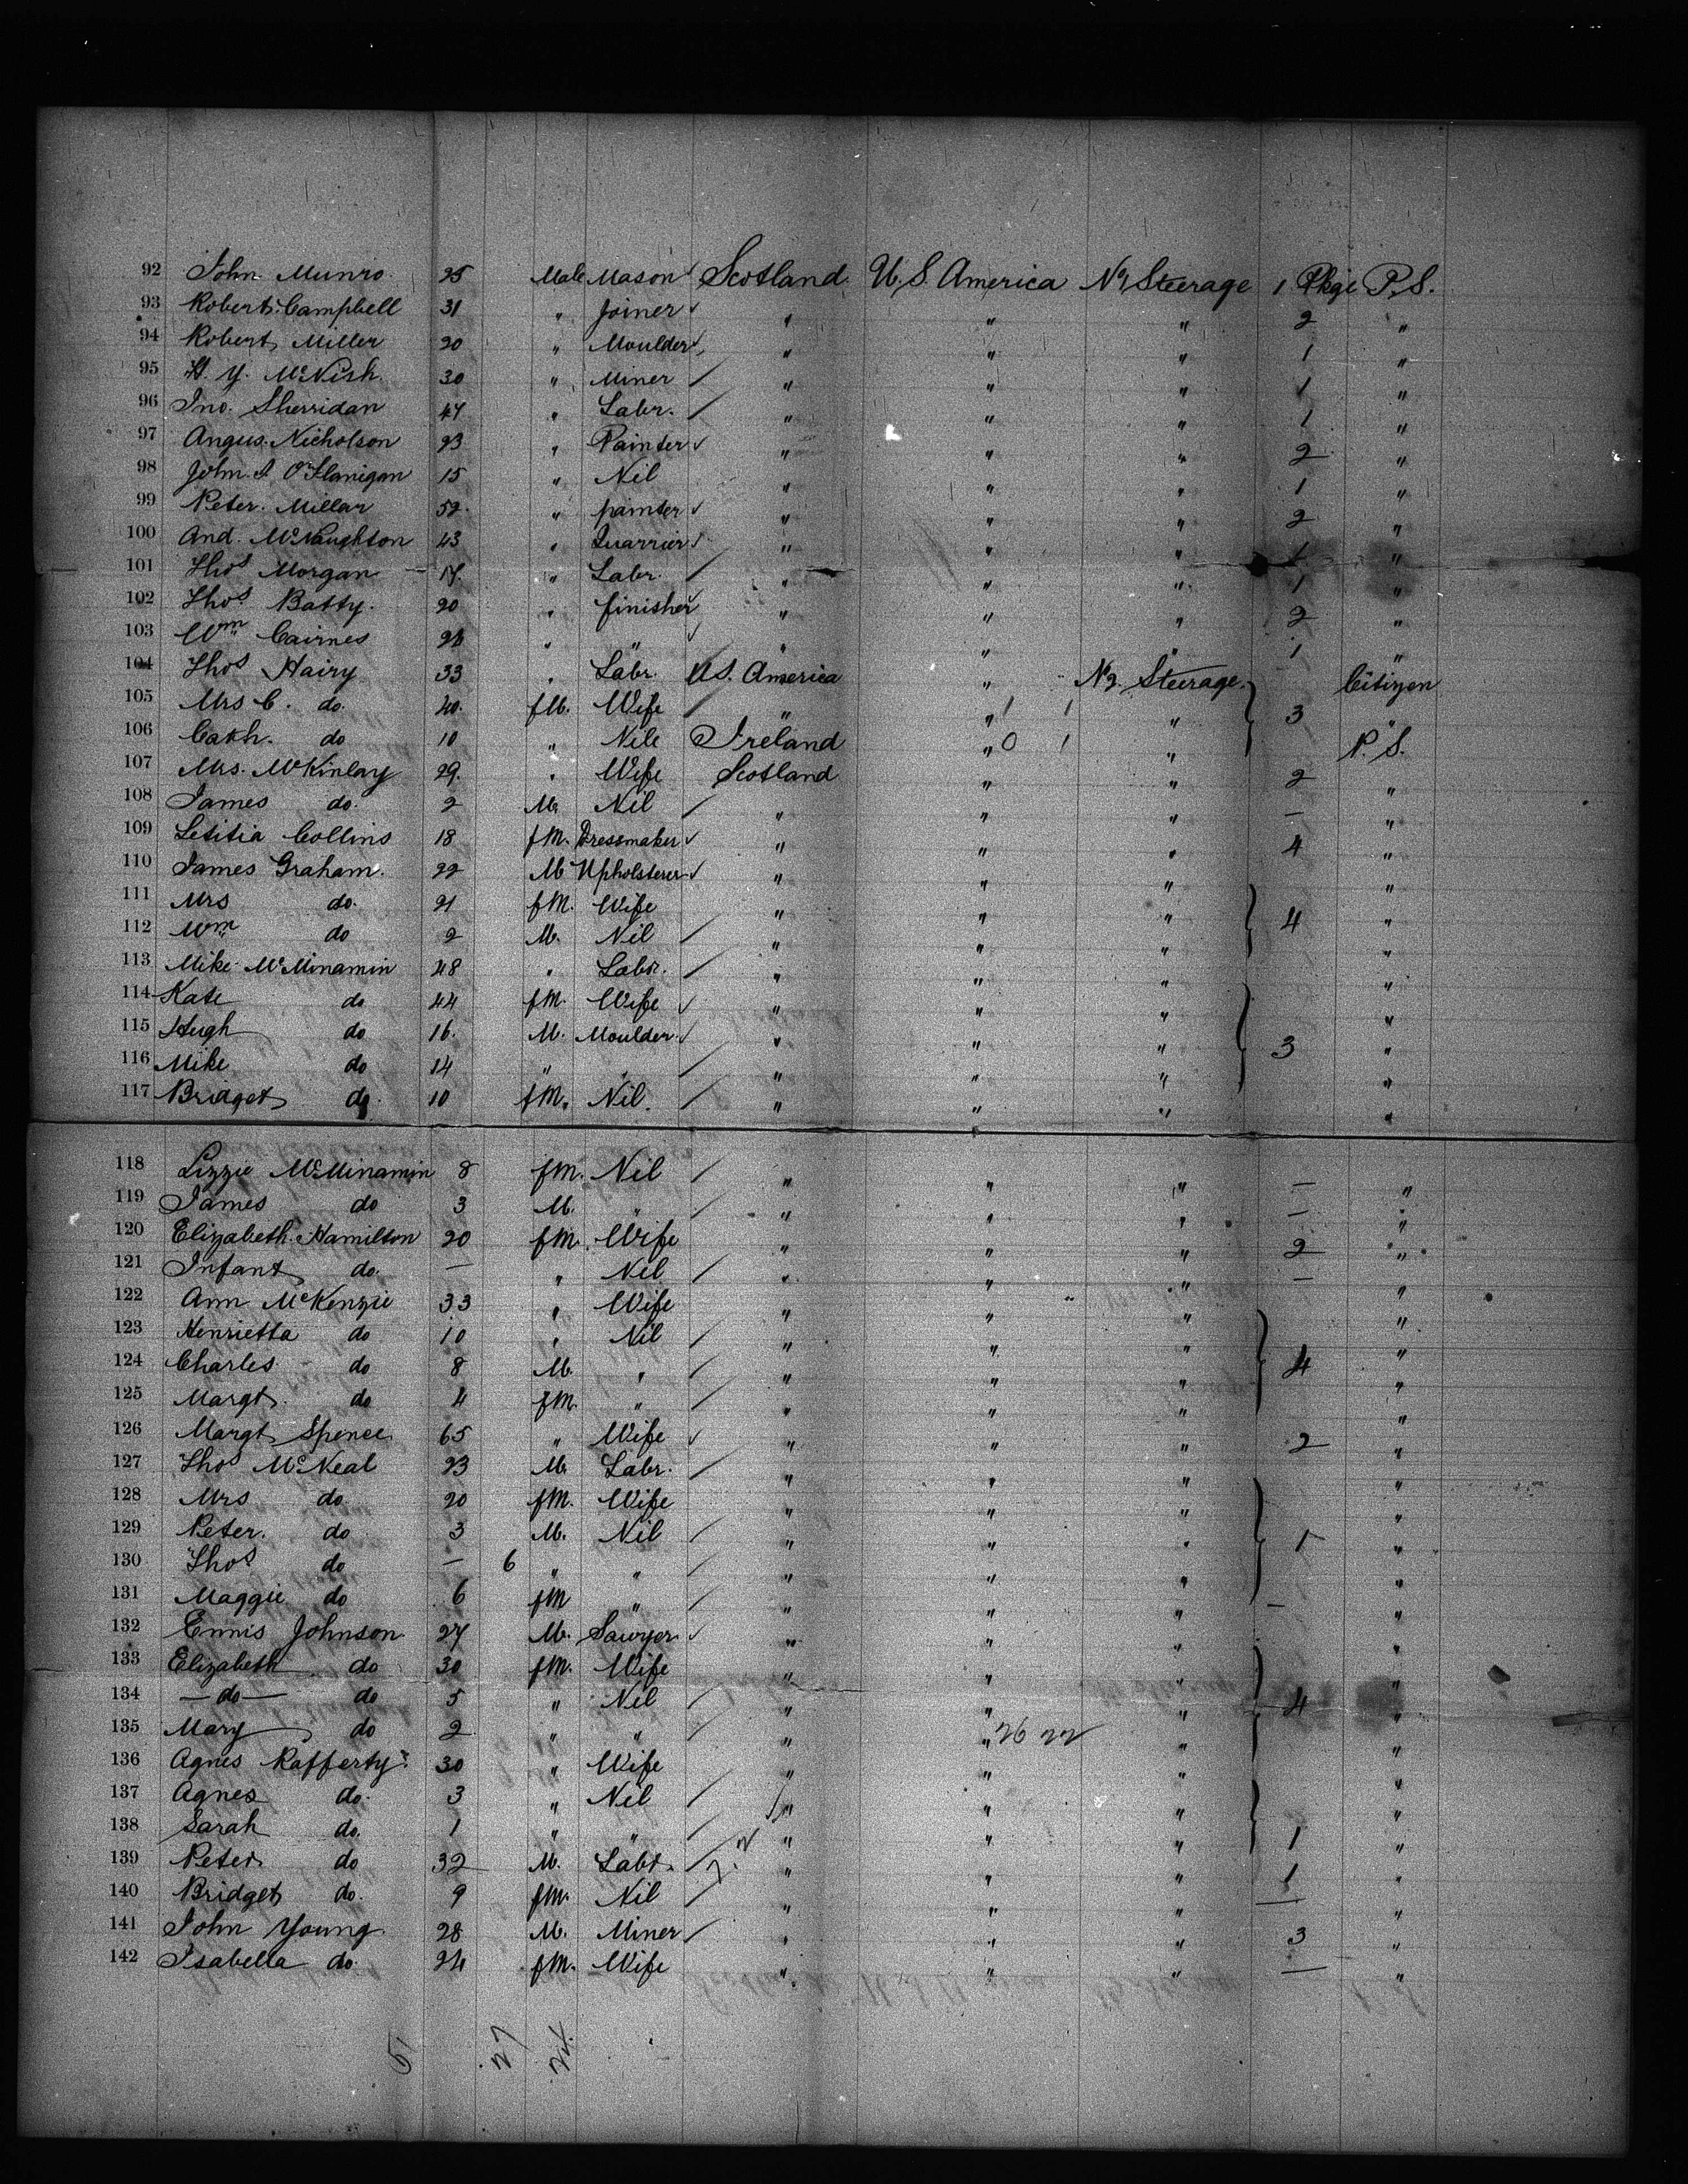 92 John Munro 25 Male Mason Scotland U.S. America No 1 Steerage 1 Pkge P.S.
93 Robert Campbell 31 " Joiner " " " 2 "
94 Robert Miller 20 " Moulder " " " 1 "
95 H. Y. McNish 30 " Miner " " " 1 "
96 Jno. Sherridan 47 " Labr. " " " 1 "
97 Angus Nicholson 23 " Painter " " " 2 "
98 John O'Flanigan 15 " Nil " " " 1 "
99 Peter Millar 52 " painter " " " 2 "
100 And. McNaughton 43 " Quarrier " " " 1 "
101 Thos Morgan 17 " Labr. " " " 1 "
102 Thos Batty 20 " finisher " " " 2 "
103 Wm Cairnes 28 " " " " " 1 "
104 Thos Hairy 33 " Labr. U.S. America " No 2 Steerage Citizen
105 Mrs C. do. 40 fM. Wife " " 1 1 " 3 "
106 Cath. do 10 " Nile Ireland " 0 1 " P.S.
107 Mrs. McKinlay 29 " Wife Scotland " " 2 "
108 James do. 2 M. Nil " " " — "
109 Letitia Collins 18 fM. Dressmaker " " " 4 "
110 James Graham 22 M Upholsterer " " " "
111 Mrs do. 21 fM. Wife " " " 4 "
112 Wm do 2 M. Nil " " " "
113 Mike McMinamin 48 " Labr. " " " "
114 Kate do 44 fM. Wife " " " "
115 Hugh do 16 M. Moulder " " " 3 "
116 Mike do 14 " " " " " "
117 Bridget do 10 fM. Nil. " " " "
118 Lizzie McMinamin 8 fM. Nil " " " — "
119 James do 3 M. " " " " — "
120 Elizabeth Hamilton 20 fM. Wife " " " 2 "
121 Infant do. — " Nil " " " — "
122 Ann McKenzie 33 " Wife " " " "
123 Henrietta do 10 " Nil " " " "
124 Charles do 8 M. " " " " 4 "
125 Margt. do 4 fM. " " " " "
126 Margt Spence 65 " Wife " " " 2 "
127 Thos McNeal 23 M. Labr. " " " "
128 Mrs do 20 fM. Wife " " " "
129 Peter do 3 M. Nil " " " 1 "
130 Thos do — 6 " " " " " "
131 Maggie do 6 fM " " " " — "
132 Ennis Johnson 27 M. Sawyer " " " "
133 Elizabeth do 30 fM. Wife " " " "
134 — do — do 5 " Nil " " " 4 "
135 Mary do 2 " " " " 26 22 " "
136 Agnes Rafferty 30 " Wife " " " "
137 Agnes do. 3 " Nil " " " "
138 Sarah do. 1 " " " " " 1 "
139 Peter do 32 M. Labr. " " " 1 "
140 Bridget do. 9 fM. Nil " " " — "
141 John Young 28 M. Miner " " " 3 "
142 Isabella do. 24 fM. Wife " " " — "
51 27 24